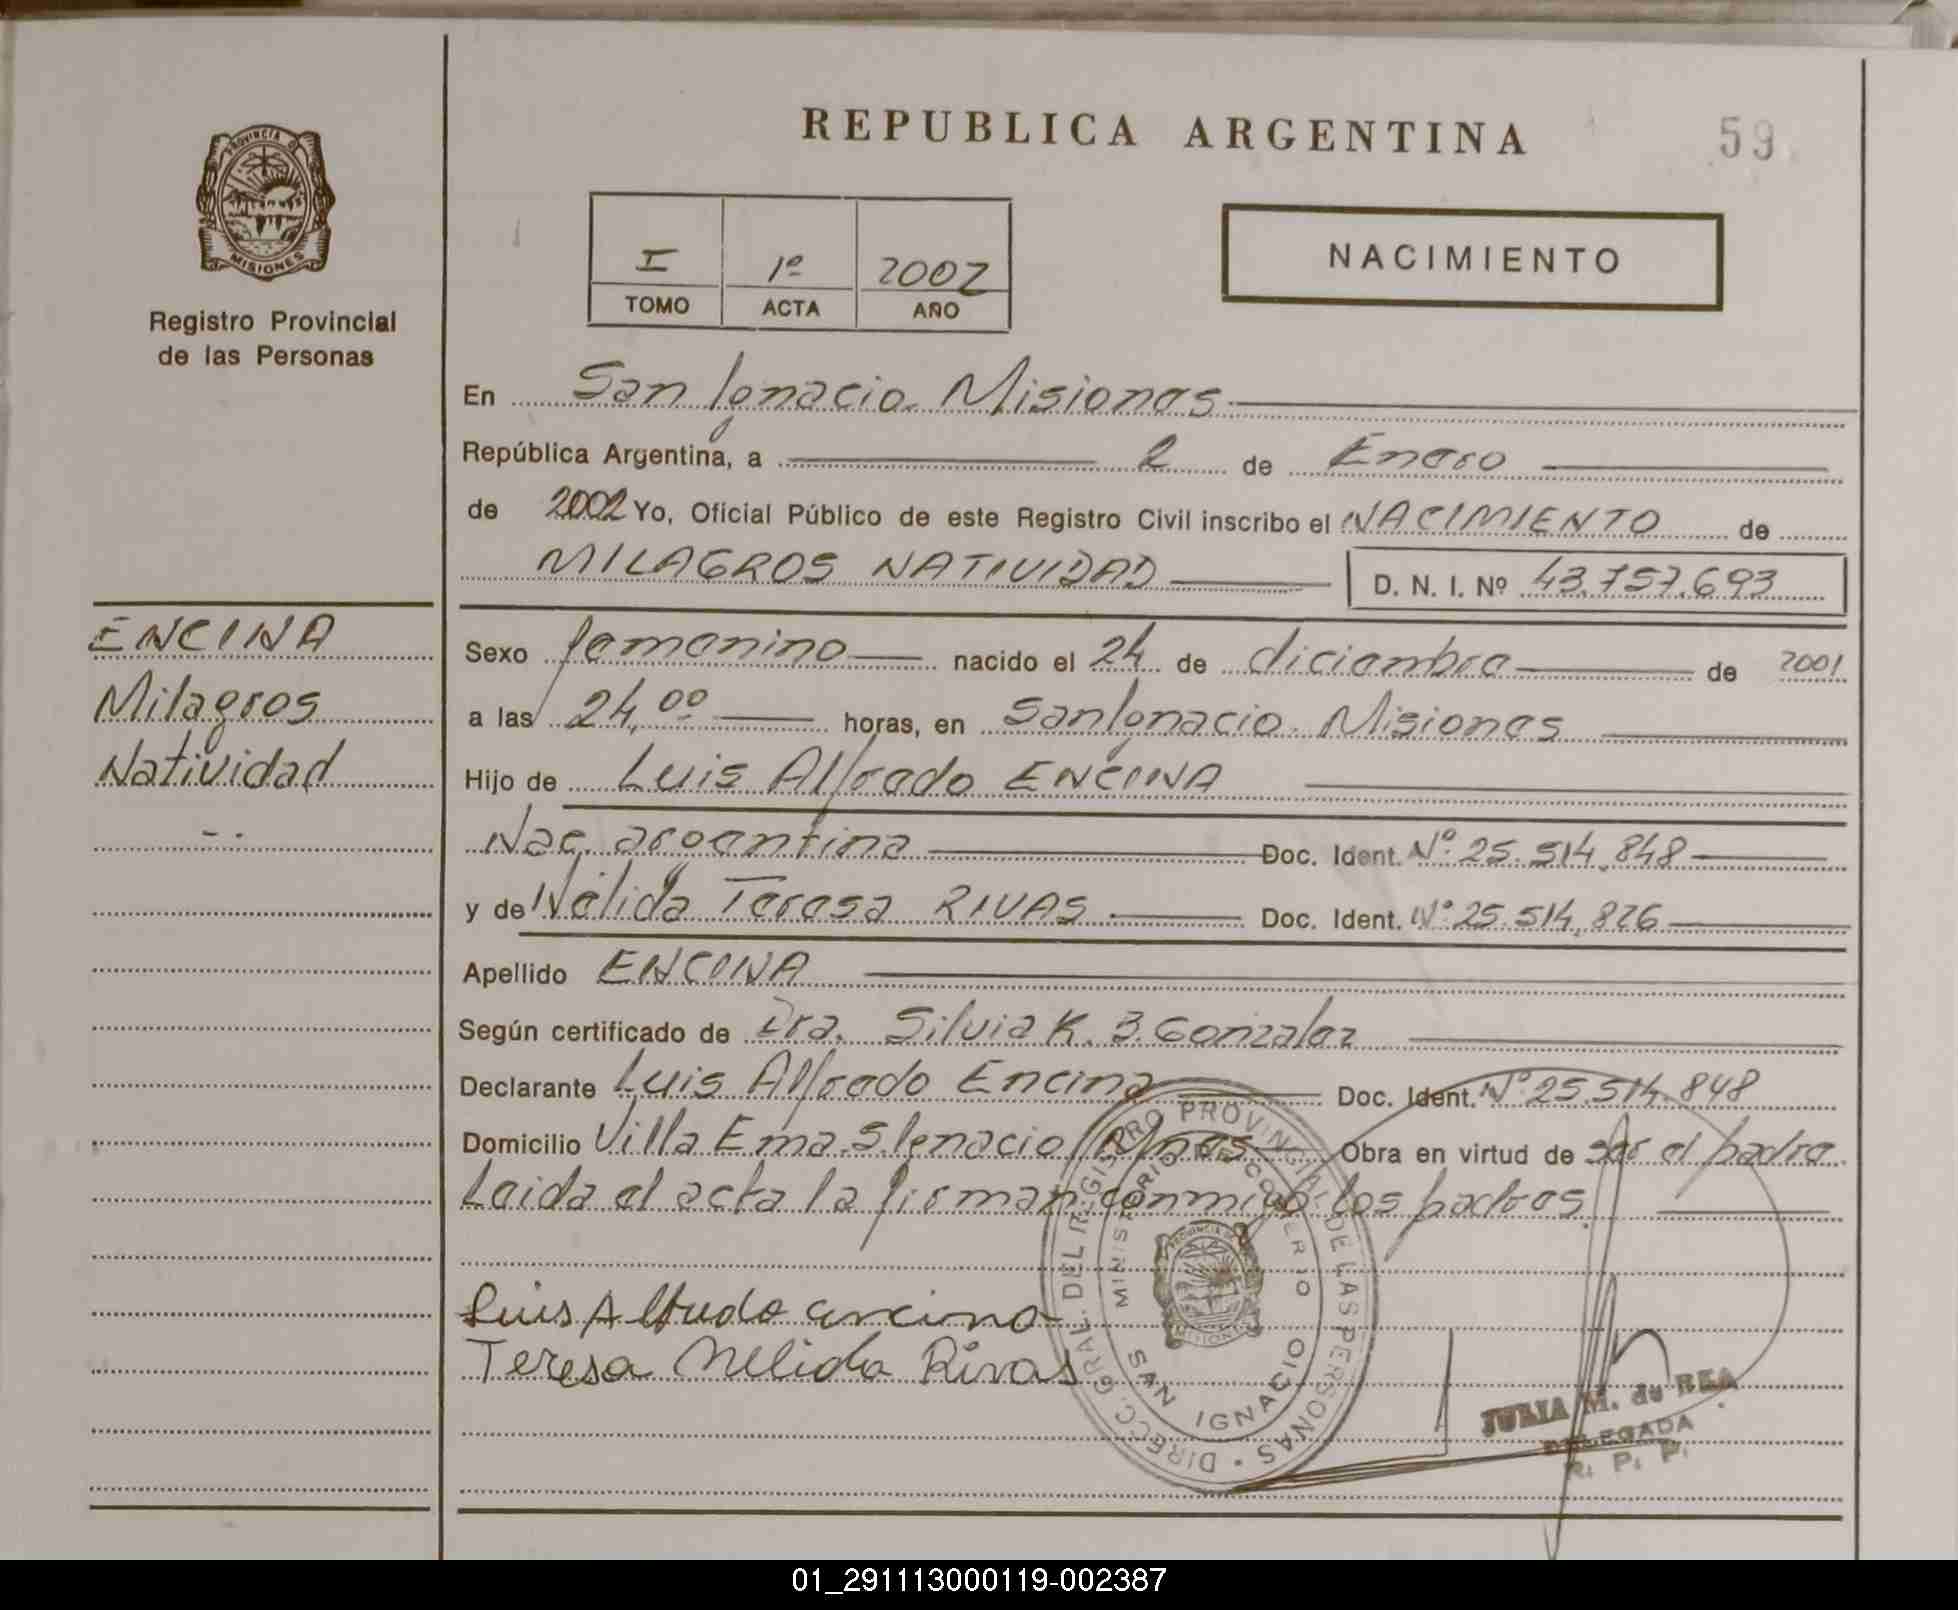 REPUBLICA ARGENTINA
59
PROVINCIA D
MISIONES
Registro Provincial
de las Personas
I 1º 2002
TOMO ACTA AÑO
NACIMIENTO
En San Ignacio Misiones
República Argentina, a 2 de Enero
de 2002 Yo, Oficial Público de este Registro Civil inscribo el NACIMIENTO de
MILAGROS NATIVIDAD D. N. I. Nº 43.757.693
ENCINA
Milagros
Natividad
Sexo femenino nacido el 24 de diciembre de 2001
a las 24,00 horas, en San Ignacio. Misiones
Hijo de Luis Alfredo ENCINA
Nac. argentina Doc. Ident. Nº 25.514.848
y de Nélida Teresa RIVAS Doc. Ident. Nº 25.514.826
Apellido ENCINA
Según certificado de Dra. Silvia K. B. Gonzalez
Declarante Luis Alfredo Encina Doc. Ident. Nº 25.514.848
Domicilio Villa Ema. S. Ignacio Mnes Obra en virtud de ser el padre
Leida el acta la firman conmigo los padres.
Luis Alfredo encina
Teresa Nelida Rivas
DIRECC. GRAL. DEL REGISTRO PROVINCIAL DE LAS PERSONAS
MINISTERIO DE GOBIERNO
SAN IGNACIO
JULIA M. de REA
DELEGADA
R. P. P.
01_291113000119-002387